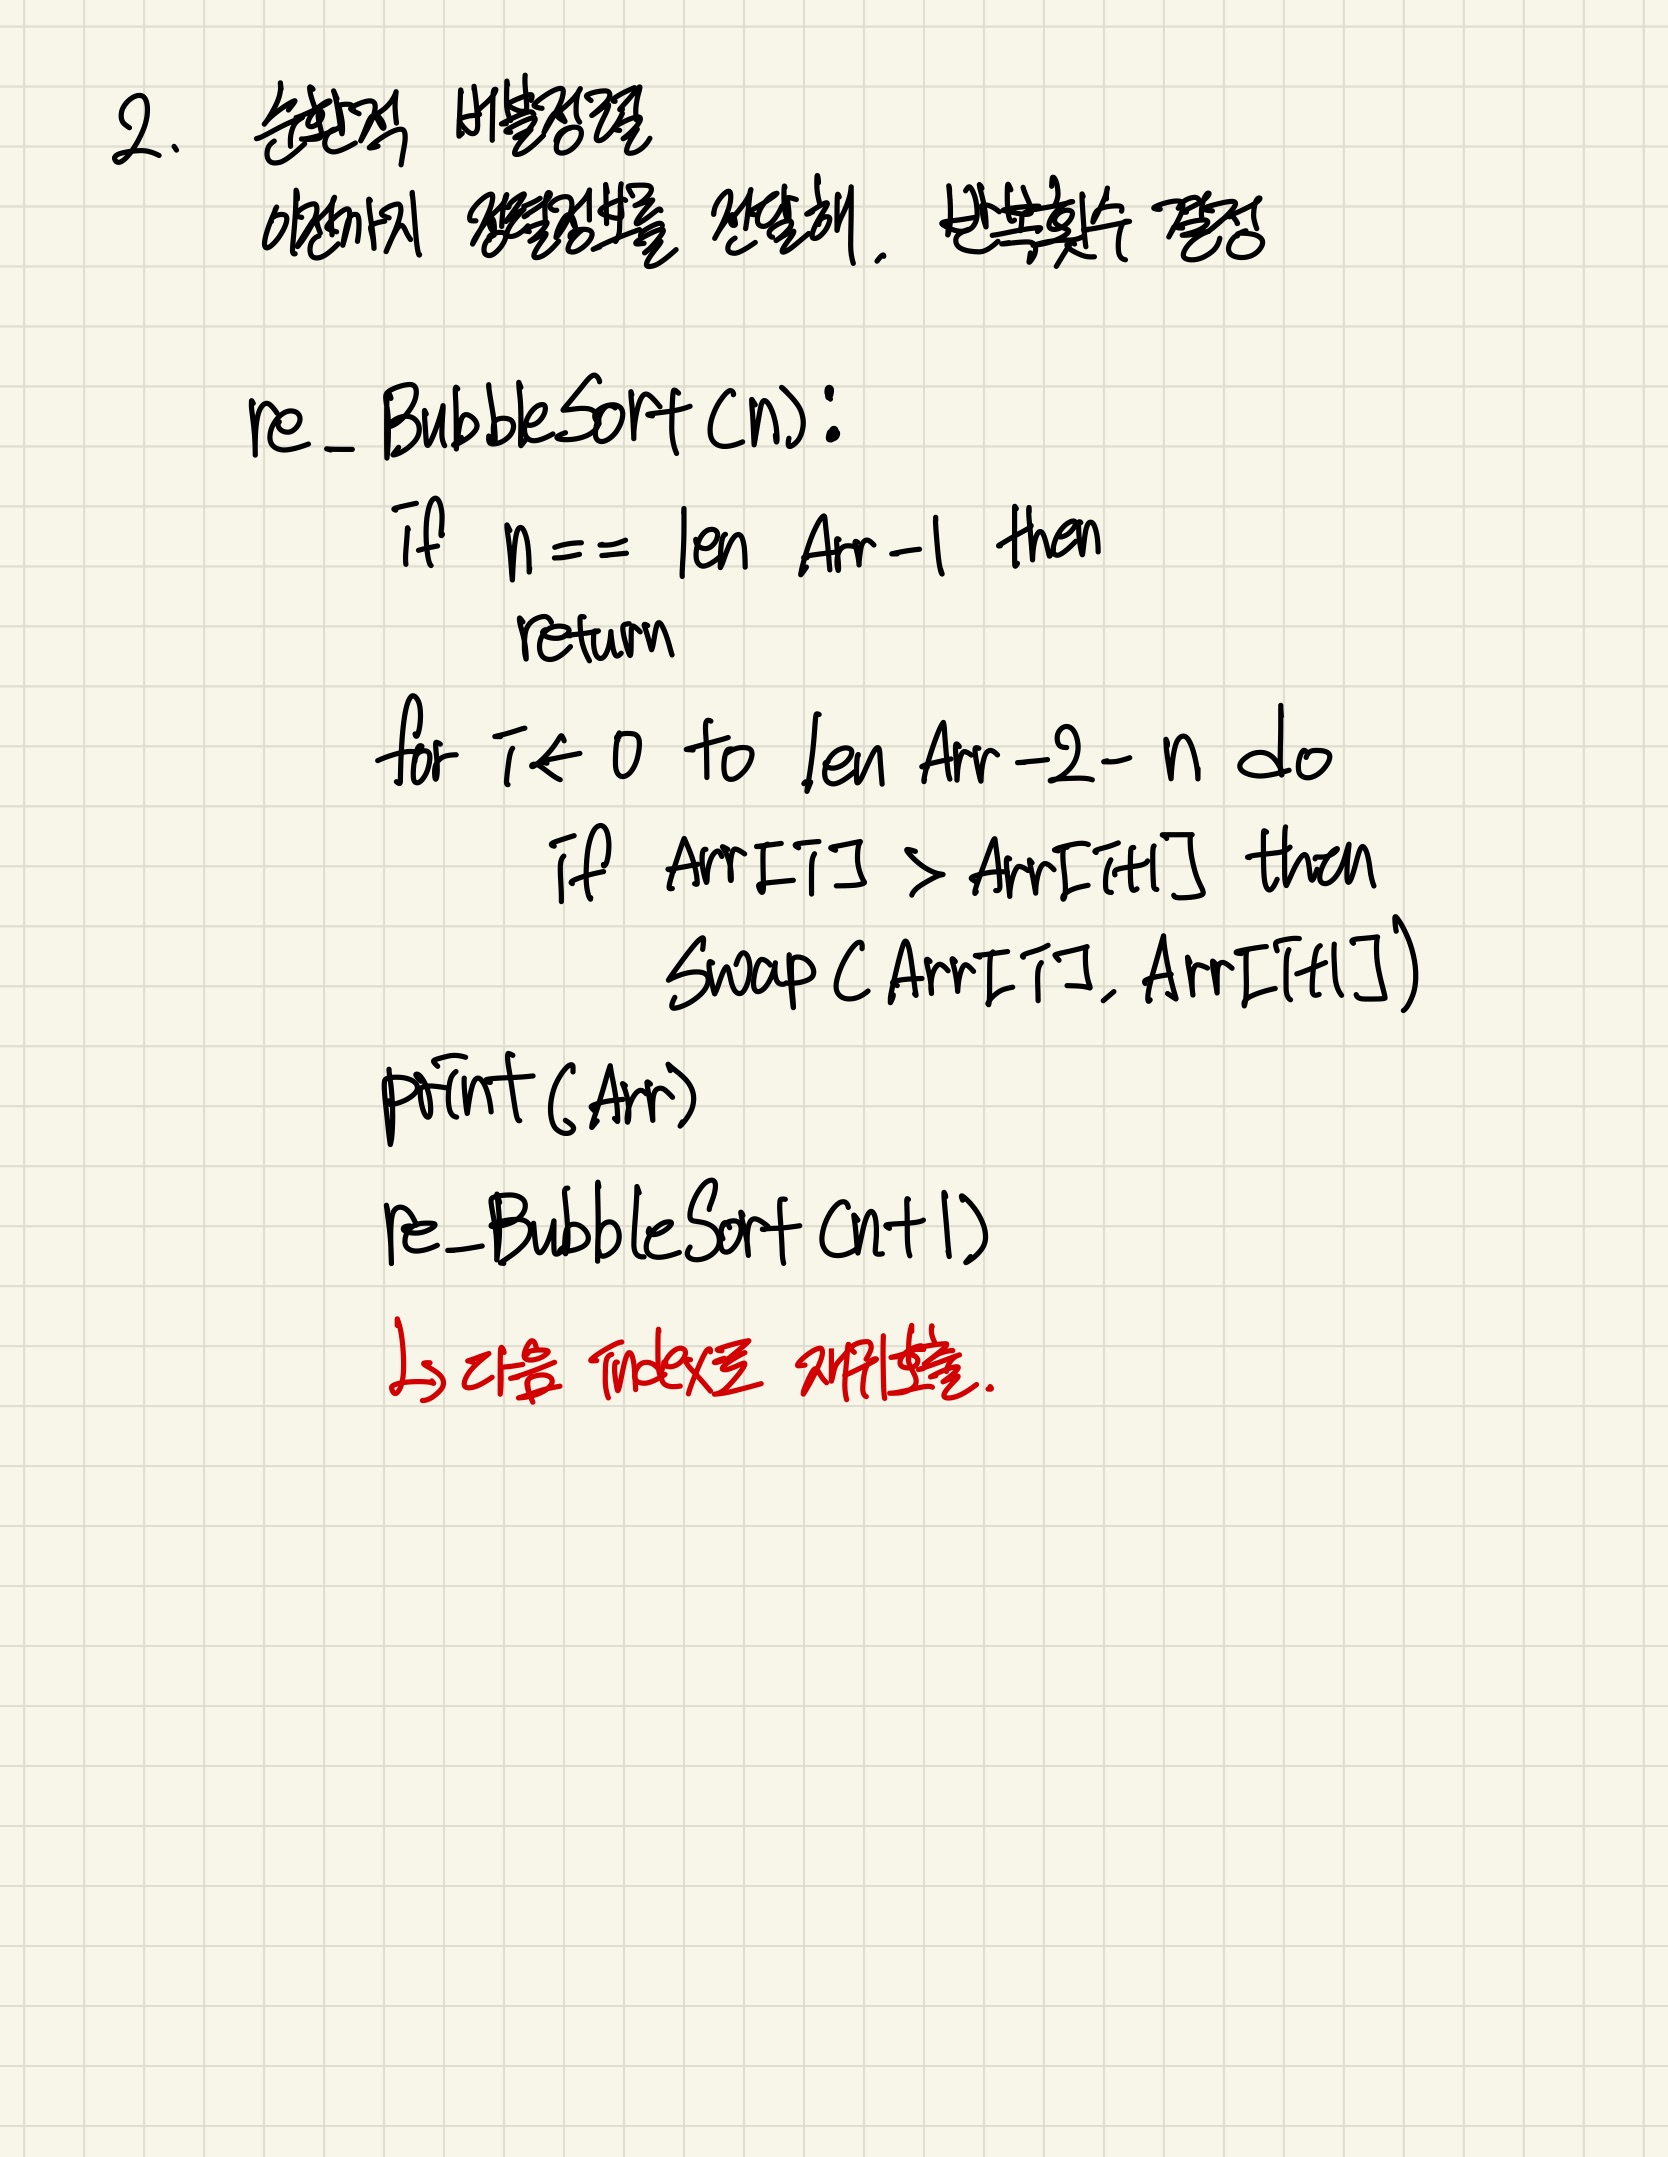 2. 순환적 버블정렬
이전까지 정렬정보를 전달해, 반복횟수 결정
re_BubbleSort(n):
if n == len Arr-1 then
return
for i ← 0 to len Arr-2-n do
if Arr[i] > Arr[i+1] then
Swap(Arr[i], Arr[i+1])
print(Arr)
re_BubbleSort(n+1)
↳ 다음 index로 재귀호출.